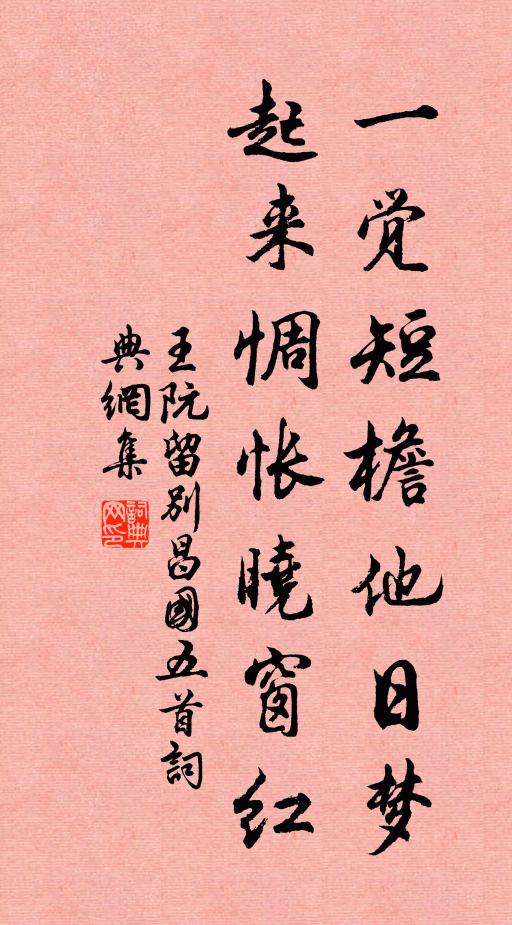 一觉短檐他日梦
起来惆怅曉窗红
王阮留别昌國五首詞
典網集
詞典
网印